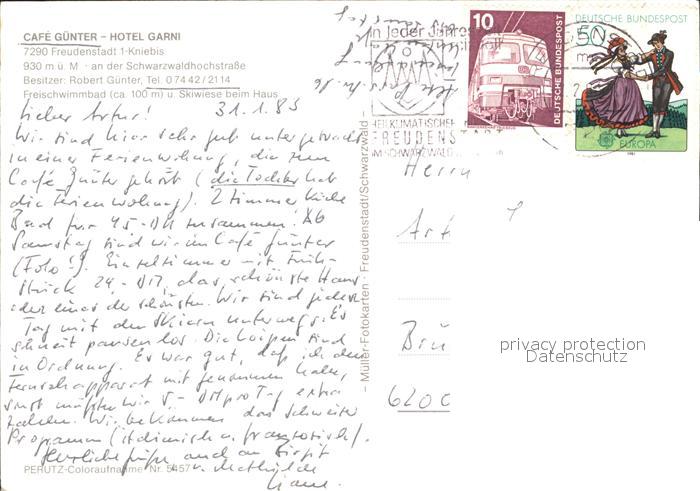 CAFÉ GÜNTER – HOTEL GARNI
7290 Freudenstadt 1-Kniebis
930 m ü. M - an der Schwarzwaldhochstraße
Besitzer: Robert Günter, Tel. 0 74 42 / 2114
Freischwimmbad (ca. 100 m) u. Skiwiese beim Haus
Lieber Artur! 31.1.83
Wir sind hier sehr gut untergebracht
in einer Ferienwohnung, die zum
Café Günter gehört (die Tochter hat
die Ferienwohnung). 2 Zimmer Küche
Bad für 45,- DM zusammen! Ab
Samstag sind wir im Café Günter
(Foto!). Einzelzimmer mit Früh-
stück 24,- DM, das schönste Haus
oder eines der schönsten. Wir sind jeden
Tag mit den Skiern unterwegs. Es
schneit pausenlos. Die Loipen sind
in Ordnung. Es war gut, daß ich den
Fernsehapparat mit genommen habe,
sonst müßten wir 5,- DM pro Tag extra
zahlen. Wir bekommen das Schweizer
Programm (italienisch u. französisch).
Herzliche Grüße auch an Birgit
u. Mathilde
PERUTZ-Coloraufnahme Nr. 5457
– Müller-Fotokarten · Freudenstadt/Schwarzwald –
in jeder Jahreszeit
HEILKLIMATISCHER
FREUDENS
IM SCHWARZWALD
10
DEUTSCHE BUNDESPOST
DEUTSCHE BUNDESPOST
50
EUROPA
1981
Herrn
Art
6200
privacy protection
Datenschutz